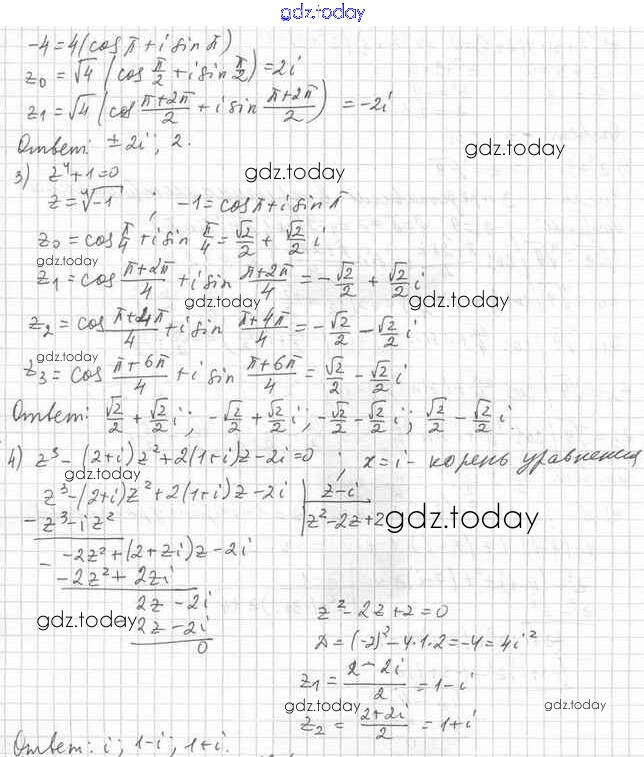 gdz.today
-4=4(cos π+i sin π)
z₀ = √4 (cos π/2 + i sin π/2) = 2i
z₁ = √4 (cos (π+2π)/2 + i sin (π+2π)/2) = -2i
Ответ: ± 2i; 2.
gdz.today
3) z⁴+1=0
gdz.today
z = ⁴√-1 ; -1 = cos π + i sin π
z₀ = cos π/4 + i sin π/4 = √2/2 + √2/2 i
gdz.today
z₁ = cos (π+2π)/4 + i sin (π+2π)/4 = -√2/2 + √2/2 i
gdz.today gdz.today
z₂ = cos (π+4π)/4 + i sin (π+4π)/4 = -√2/2 - √2/2 i
gdz.today
z₃ = cos (π+6π)/4 + i sin (π+6π)/4 = √2/2 - √2/2 i
Ответ: √2/2 + √2/2 i; -√2/2 + √2/2 i; -√2/2 - √2/2 i; √2/2 - √2/2 i.
4) z³ - (2+i)z² + 2(1+i)z - 2i = 0 ; x = i - корень уравнения
gdz.today
z³ - (2+i)z² + 2(1+i)z - 2i | z-i
- z³ - iz² | z² - 2z + 2
gdz.today
- -2z² + (2+2i)z - 2i
-2z² + 2zi
2z - 2i
gdz.today
2z - 2i
0
z² - 2z + 2 = 0
D = (-2)² - 4·1·2 = -4 = 4i²
z₁ = (2-2i)/2 = 1-i
gdz.today gdz.today
z₂ = (2+2i)/2 = 1+i
Ответ: i; 1-i; 1+i.